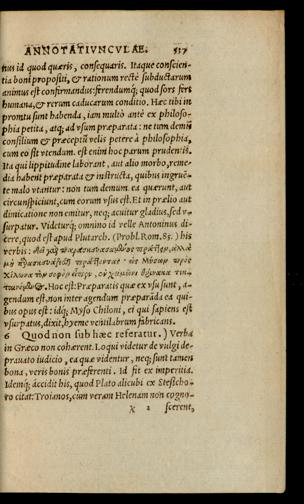 ANNOTATIVNCVLAE. 537
tius id quod quæris, consequaris. Itaque conscien-
tia boni propositi, & rationum rectè subductarum
animus est confirmandus: ferendumq; quod fors fert
humana, & rerum caducarum conditio. Hæc tibi in
promtu sunt habenda, iam multò antè ex philoso-
phia petita, atq; ad vsum præparata: ne tum demũ
consilium & præcepta velis petere à philosophia,
cum eo sit vtendum. est enim hoc parum prudentis.
Ita qui lippitudine laborant, aut alio morbo, reme-
dia habent præparata & instructa, quibus ingruẽ-
te malo vtantur: non tum demum ea quærunt, aut
circunspiciunt, cum eorum vsus est. Et in prælio aut
dimicatione non emitur, neq; acuitur gladius, sed v-
surpatur. Videturq; omnino id velle Antoninus di-
cere, quod est apud Plutarch. (Probl. Rom. 85.) his
verbis:
Hoc est: Præparatis quæ ex vsu sunt, a-
gendum est, non inter agendum præparãda ea qui-
bus opus est: idq; Myso Chiloni, ei qui sapiens est
vsurpatus, dixit, hyeme ventilabrum fabricans.
6 Quod non sub hæc referatur.) Verba
in Græco non cohærent. Loqui videtur de vulgi de-
prauato iudicio, ea quæ videntur, neq; sunt tamen
bona, veris bonis præferenti. Id fit ex imperitia.
Idemq; accidit his, quod Plato alicubi ex Stesicho-
ro citat: Troianos, cum veram Helenam non cogno-
χ 2 scerent,